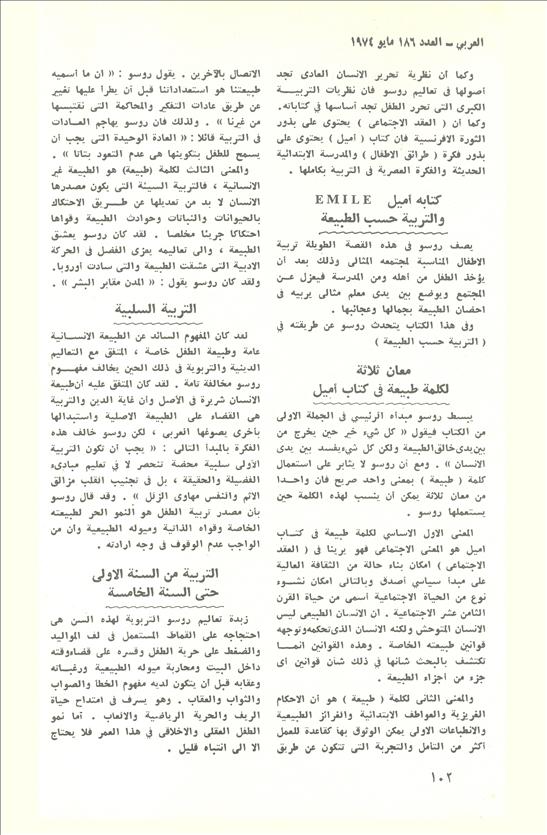 العربي - العدد ١٨٦ مايو ١٩٧٤
وكما أن نظرية تحرير الانسان العادى تجد
أصولها فى تعاليم روسو فان نظريات التربيـــة
الكبرى التى تحرر الطفل تجد أساسها في كتاباته.
وكما أن ( العقد الاجتماعى ) يحتوى على بذور
الثورة الافرنسية فان كتاب ( أميل ) يحتوى على
بذور فكرة ( طرائق الاطفال ) والمدرسة الابتدائية
الحديثة والفكرة العصرية فى التربية بكاملها .
كتابه أميل EMILE
والتربية حسب الطبيعة
يصف روسو فى هذه القصة الطويلة تربية
الاطفال المناسبة لمجتمعه المثالى وذلك بعد أن
يؤخذ الطفل من أهله ومن المدرسة فيعزل عـــن
المجتمع ويوضع بين يدى معلم مثالى يربيه فى
احضان الطبيعة بجمالها وعجائبها .
وفى هذا الكتاب يتحدث روسو عن طريقته في
( التربية حسب الطبيعة )
معان ثلاثة
لكلمة طبيعة فى كتاب أميل
يبسط روسو مبدأه الرئيسي فى الجملة الاولى
من الكتاب فيقول « كل شيء خير حين يخرج من
بين يدى خالق الطبيعة ولكن كل شيء يفسد بين يدى
الانسان » . ومع أن روسو لا يثابر على استعمال
كلمة ( طبيعة ) بمعنى واحد صريح فان واحـدا
من معان ثلاثة يمكن أن ينسب لهذه الكلمة حين
يستعملها روسو .
المعنى الاول الاساسي لكلمة طبيعة فى كتـــاب
اميل هو المعنى الاجتماعى فهو يرينا في ( العقد
الاجتماعى ) امكان بناء حالة من الثقافة العالية
على مبدأ سياسي أصدق وبالتالى امكان نشــوء
نوع من الحياة الاجتماعية أسمى من حياة القرن
الثامن عشر الاجتماعية . ان الانسان الطبيعى ليس
الانسان المتوحش ولكنه الانسان الذى تحكمه وتوجهه
قوانين طبيعته الخاصة . وهذه القوانين انمـــا
تكتشف بالبحث شأنها في ذلك شأن قوانين أى
جزء من أجزاء الطبيعة .
والمعنى الثانى لكلمة ( طبيعة ) هو أن الاحكام
الغريزية والعواطف الابتدائية والغرائز الطبيعية
والانطباعات الاولى يمكن الوثوق بها كقاعدة للعمل
أكثر من التأمل والتجربة التى تتكون عن طريق
الاتصال بالآخرين . يقول روسو : « ان ما أسميه
طبيعتنا هو استعداداتنا قبل أن يطرأ عليها تغيير
عن طريق عادات التفكير والمحاكمة التى نقتبسها
من غيرنا » . ولذلك فان روسو يهاجم العــادات
فى التربية قائلا : « العادة الوحيدة التى يجب أن
يسمح للطفل بتكوينها هى عدم التعود بتاتا » .
والمعنى الثالث لكلمة (طبيعة) هو الطبيعة غير
الانسانية ، فالتربية السيئة التى يكون مصدرها
الانسان لا بد من تعديلها عن طريـق الاحتكاك
بالحيوانات والنباتات وحوادث الطبيعة وقواها
احتكاكا جريئا مخلصا . لقد كان روسو يعشـق
الطبيعة ، والى تعاليمه يعزى الفضل فى الحركة
الادبية التى عشقت الطبيعة والتى سادت أوروبا.
ولقد كان روسو يقول : « المدن مقابر البشر » .
التربية السلبية
لقد كان المفهوم السائد عن الطبيعة الانســانية
عامة وطبيعة الطفل خاصة ، المتفق مع التعاليم
الدينية والتربوية فى ذلك الحين يخالف مفهـــوم
روسو مخالفة تامة . لقد كان المتفق عليه أن طبيعة
الانسان شريرة فى الأصل وأن غاية الدين والتربية
هى القضاء على الطبيعة الاصلية واستبدالها
بأخرى يصوغها المربى ، لكن روسو خالف هذه
الفكرة بالمبدأ التالى : « يجب أن تكون التربية
الأولى سلبية محضة تنحصر لا في تعليم مبادىء
الفضيلة والحقيقة ، بل فى تجنيب القلب مزالق
الاثم والنفس مهاوى الزلل » . وقد قال روسو
بأن مصدر تربية الطفل هو النمو الحر لطبيعته
الخاصة وقواه الذاتية وميوله الطبيعية وأن من
الواجب عدم الوقوف فى وجه ارادته .
التربية من السنة الاولى
حتى السنة الخامسة
زبدة تعاليم روسو التربوية لهذه السن هى
احتجاجه على القماط المستعمل فى لف المواليد
والضغط على حرية الطفل وقسره على قضاء وقته
داخل البيت ومحاربة ميوله الطبيعية ورغبـاته
وعقابه قبل أن يتكون لديه مفهوم الخطأ والصواب
والثواب والعقاب . وهو يسرف فى امتداح حياة
الريف والحرية الرياضية والالعاب . أما نمو
الطفل العقلى والاخلاقى فى هذا العمر فلا يحتاج
الا الى انتباه قليل .
١٠٢